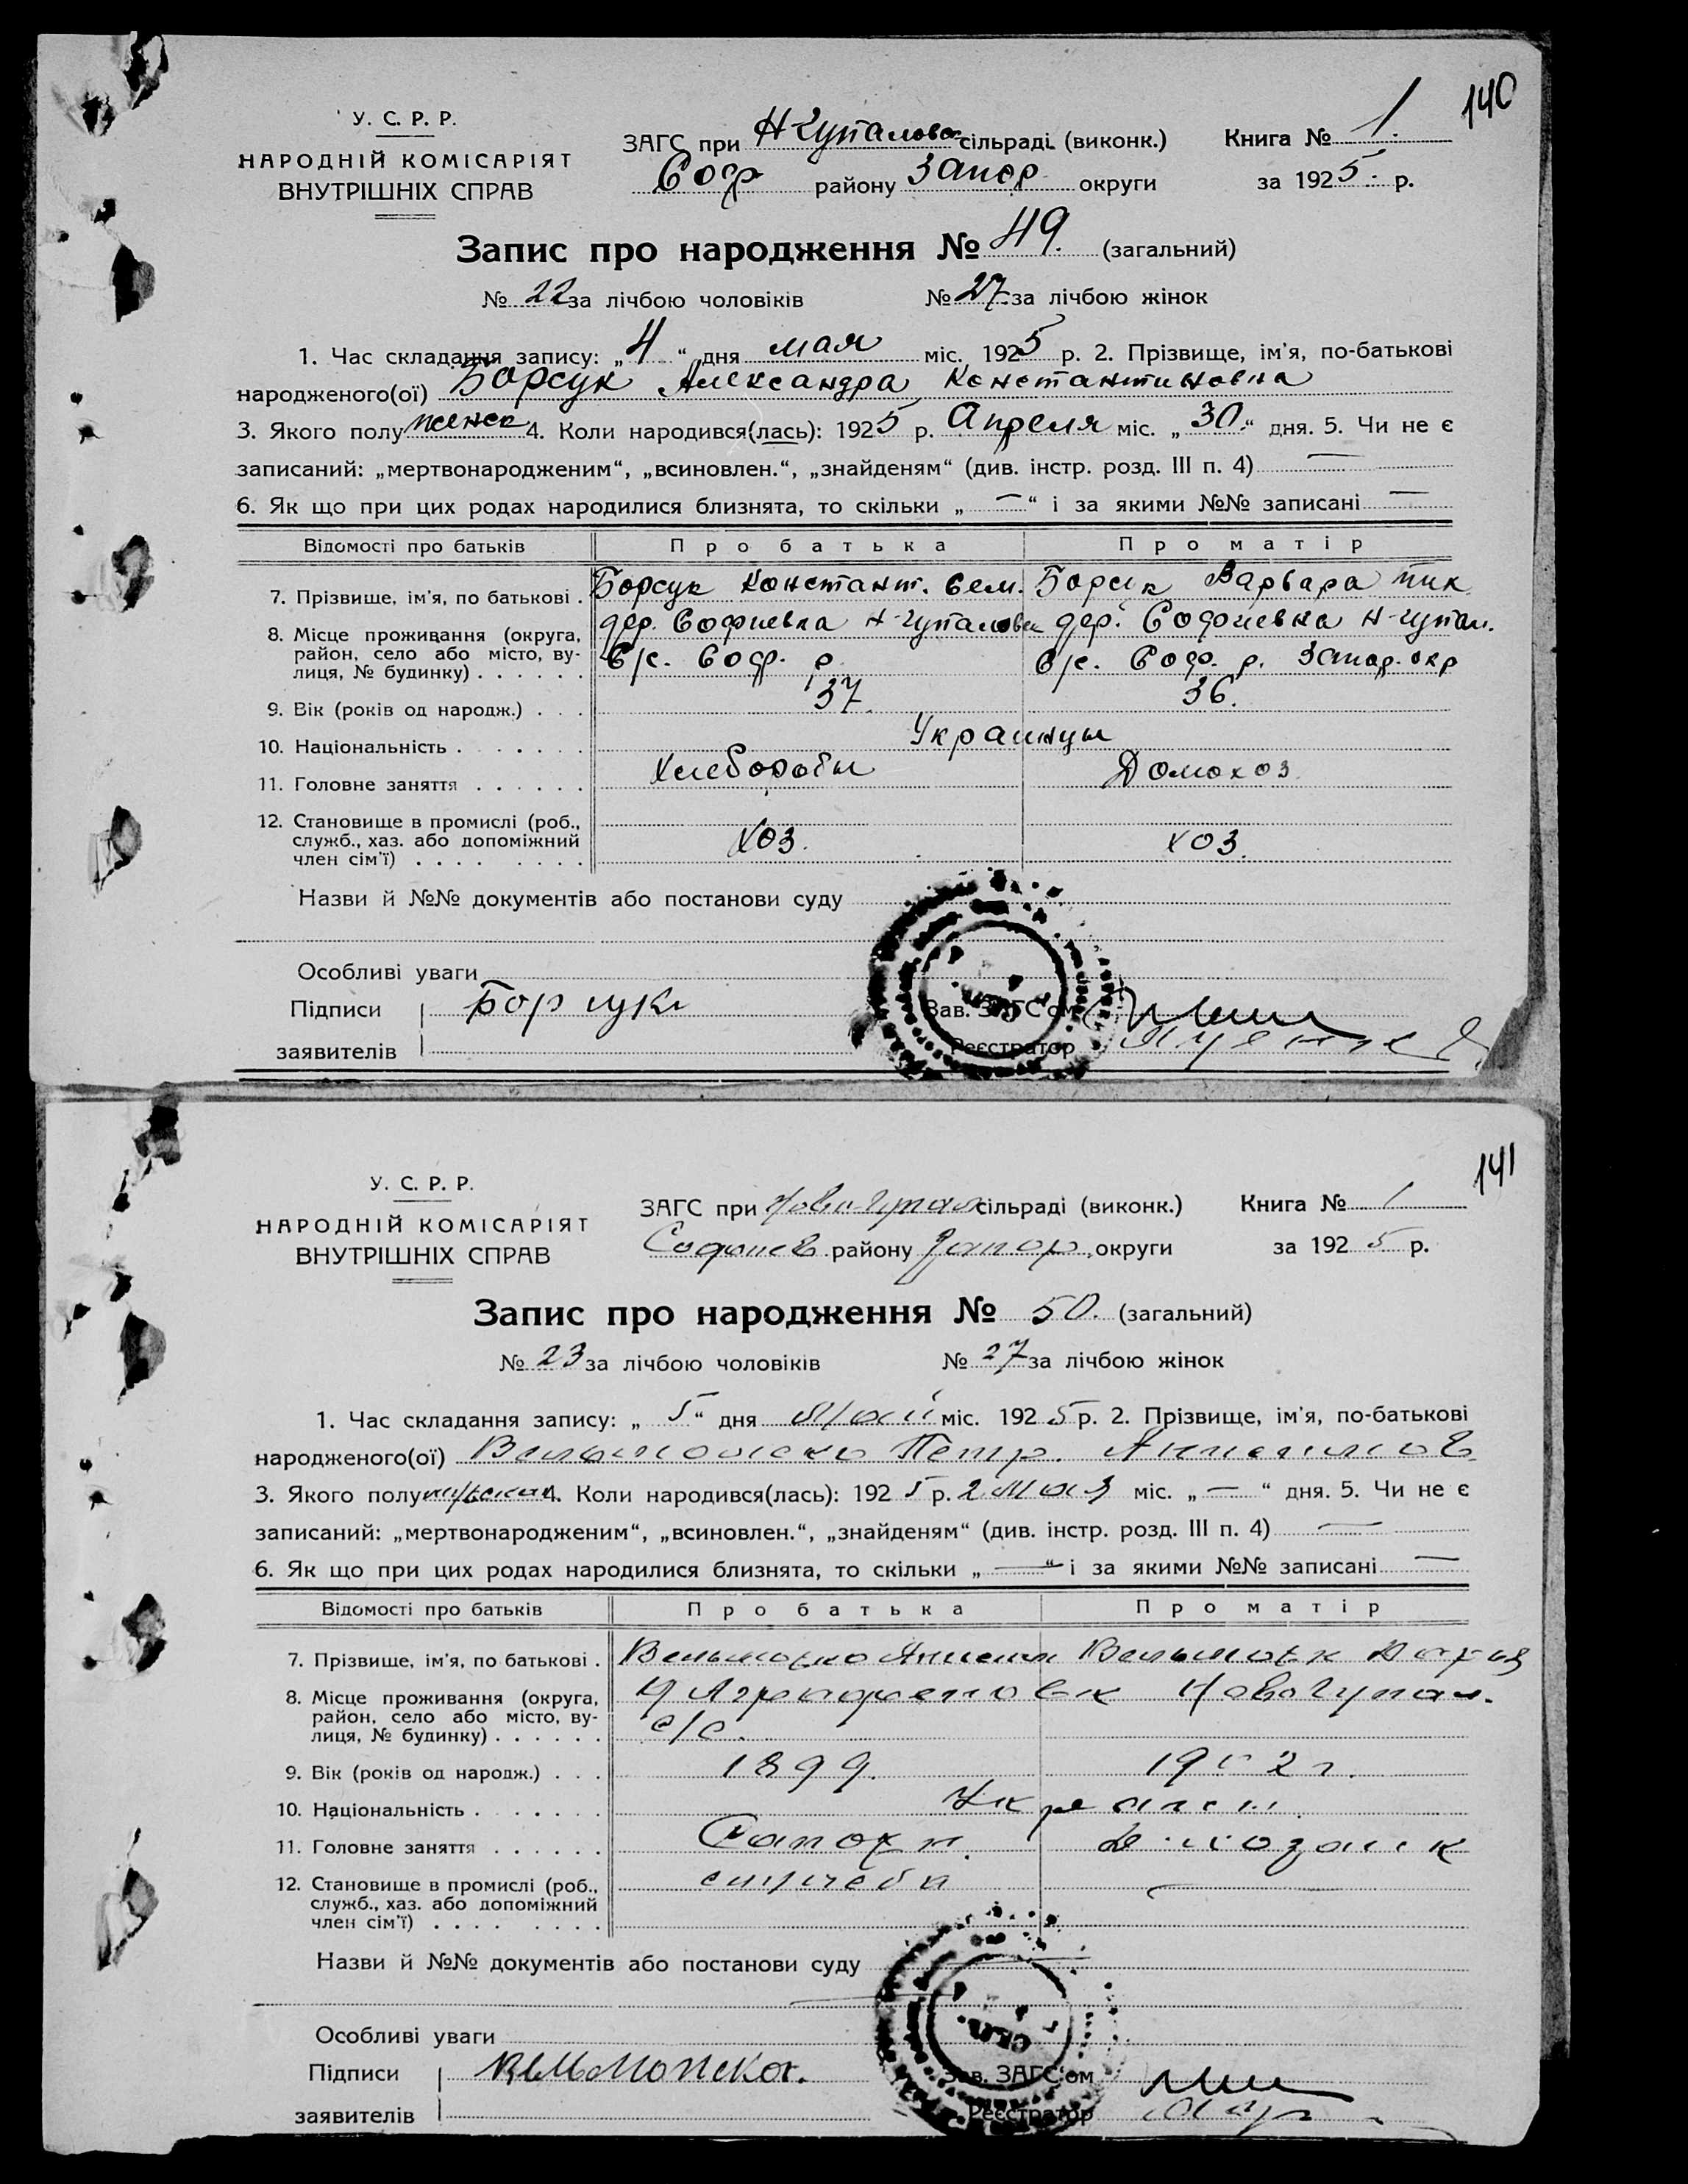 140
У. С. Р. Р.
НАРОДНІЙ КОМІСАРІЯТ
ВНУТРІШНІХ СПРАВ
ЗАГС при Н-Чупалово сільраді (виконк.)
Соф району Запор округи
Книга № 1.
за 1925 р.
Запис про народження № 49. (загальний)
№ 22 за лічбою чоловіків № 27 за лічбою жінок
1. Час складання запису: „4“ дня мая міс. 1925 р. 2. Прізвище, ім’я, по-батькові
народженого(ої) Борсук Александра Константиновна
3. Якого полу женск 4. Коли народився(лась): 1925 р. Апреля міс. „30.“ дня. 5. Чи не є
записаний: „мертвонародженим“, „всиновлен.“, „знайденям“ (див. інстр. розд. III п. 4) —
6. Як що при цих родах народилися близнята, то скільки „—“ і за якими №№ записані —
Відомості про батьків Про батька Про матір
7. Прізвище, ім’я, по батькові . Борсук Констант. Сем. Борсук Варвара
8. Місце проживання (округа, район, село або місто, вулиця, № будинку) . . . . . .
дер. Софиевка Н-Чупаловск дер. Софиевка Н-Чупал.
С/с. Соф. р. С/с. Соф. р. Запор. окр
9. Вік (років од народж.) . . . 37. 36.
10. Національність . . . . . . . Украинцы
11. Головне заняття . . . . . . Хлеборобы Домохоз.
12. Становище в промислі (роб., служб., хаз. або допоміжний член сім’ї) . . . . . . . . хоз. хоз.
Назви й №№ документів або постанови суду
Особливі уваги
Підписи Борсук
заявителів
Зав. ЗАГС’ом
Реєстратор
141
У. С. Р. Р.
НАРОДНІЙ КОМІСАРІЯТ
ВНУТРІШНІХ СПРАВ
ЗАГС при Ново-Чупал сільраді (виконк.)
Софиев району Запор. округи
Книга № 1
за 1925 р.
Запис про народження № 50. (загальний)
№ 23 за лічбою чоловіків № 27 за лічбою жінок
1. Час складання запису: „5“ дня Май міс. 1925 р. 2. Прізвище, ім’я, по-батькові
народженого(ої) Петр.
3. Якого полу мужский 4. Коли народився(лась): 1925 р. 2 мая міс. „—“ дня. 5. Чи не є
записаний: „мертвонародженим“, „всиновлен.“, „знайденям“ (див. інстр. розд. III п. 4) —
6. Як що при цих родах народилися близнята, то скільки „—“ і за якими №№ записані —
Відомості про батьків Про батька Про матір
7. Прізвище, ім’я, по батькові .
8. Місце проживання (округа, район, село або місто, вулиця, № будинку) . . . . . .
НовоЧупал.
с/с.
9. Вік (років од народж.) . . . 1899. 1902 г.
10. Національність . . . . . . .
11. Головне заняття . . . . . .
12. Становище в промислі (роб., служб., хаз. або допоміжний член сім’ї) . . . . . . . . —
Назви й №№ документів або постанови суду
Особливі уваги
Підписи
заявителів
Зав. ЗАГС’ом
Реєстратор